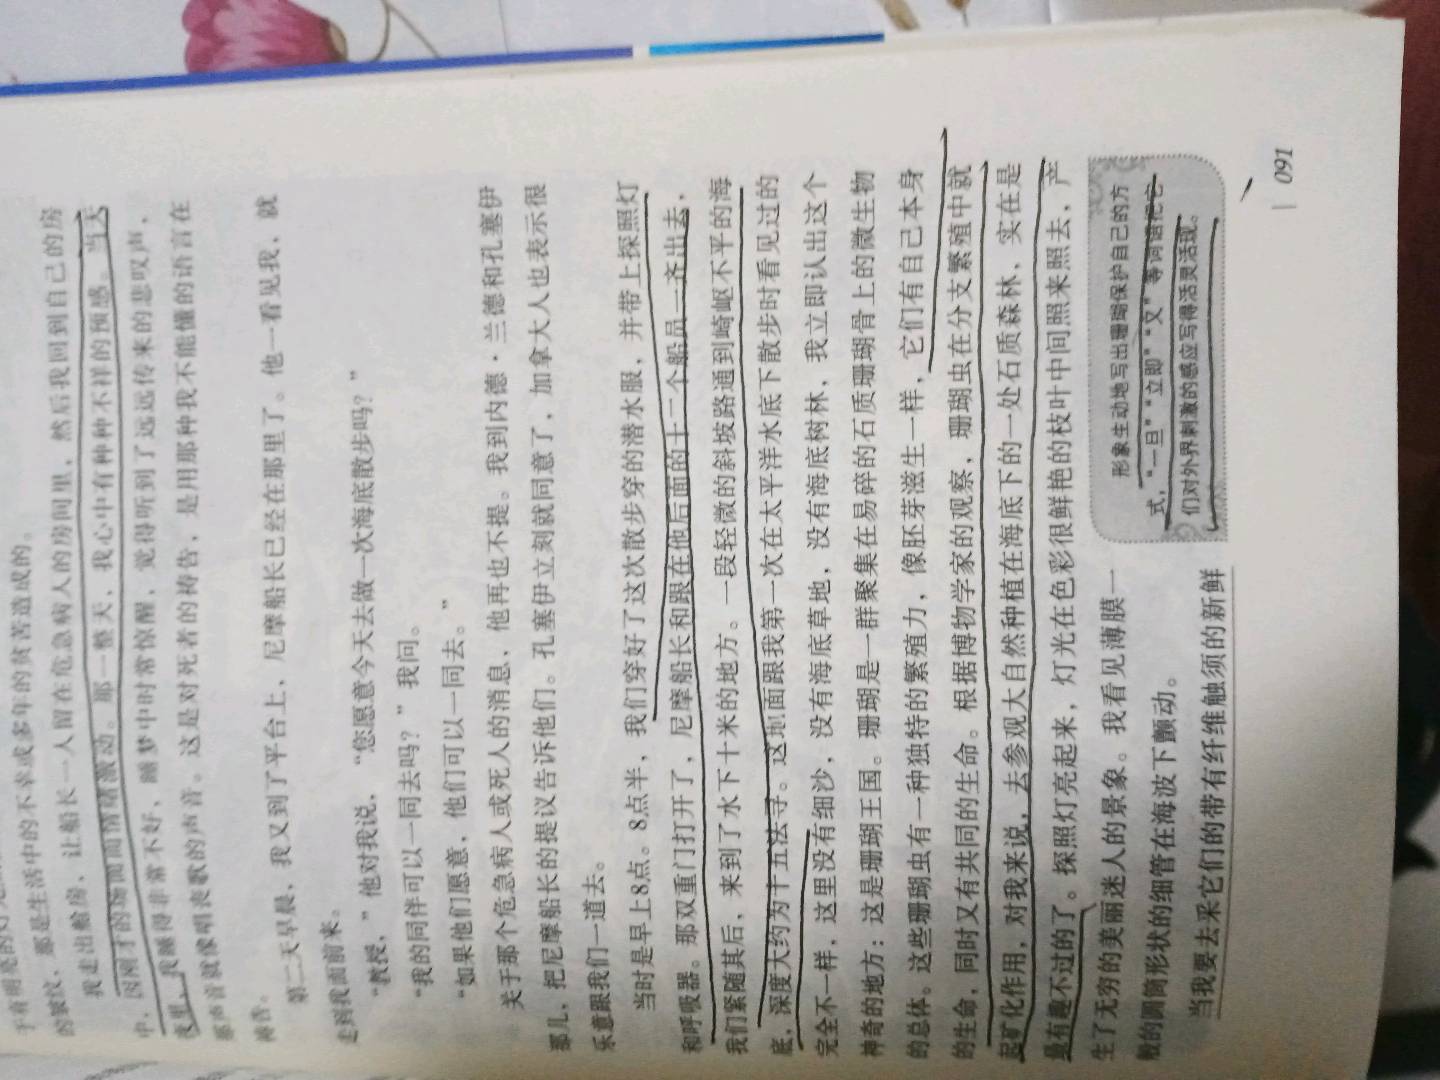 的皱纹，那是生活中的不幸或多年的贫苦造成的。
我走出舱房，让船长一人留在危急病人的房间里，然后我回到自己的房
中，因刚才的场面而情绪激动。那一整天，我心中有种种不祥的预感。当天
夜里，我睡得非常不好，睡梦中时常惊醒，觉得听到了远远传来的悲叹声，
那声音就像唱丧歌的声音。这是对死者的祷告，是用那种我不能懂的语言在
祷告。
第二天早晨，我又到了平台上，尼摩船长已经在那里了。他一看见我，就
走到我面前来。
“教授，”他对我说，“您愿意今天去做一次海底散步吗？”
“我的同伴可以一同去吗？”我问。
“如果他们愿意，他们可以一同去。”
关于那个危急病人或死人的消息，他再也不提。我到内德·兰德和孔塞伊
那儿，把尼摩船长的提议告诉他们。孔塞伊立刻就同意了，加拿大人也表示很
乐意跟我们一道去。
当时是早上8点。8点半，我们穿好了这次散步穿的潜水服，并带上探照灯
和呼吸器。那双重门打开了，尼摩船长和跟在他后面的十二个船员一齐出去，
我们紧随其后，来到了水下十米的地方。一段轻微的斜坡路通到崎岖不平的海
底，深度大约为十五法寻。这地面跟我第一次在太平洋水底下散步时看见过的
完全不一样，这里没有细沙，没有海底草地，没有海底树林，我立即认出这个
神奇的地方：这是珊瑚王国。珊瑚是一群聚集在易碎的石质珊瑚骨上的微生物
的总体。这些珊瑚虫有一种独特的繁殖力，像胚芽滋生一样，它们有自己本身
的生命，同时又有共同的生命。根据博物学家的观察，珊瑚虫在分支繁殖中就
起矿化作用，对我来说，去参观大自然种植在海底下的一处石质森林，实在是
最有趣不过的了。探照灯亮起来，灯光在色彩很鲜艳的枝叶中间照来照去，产
生了无穷的美丽迷人的景象。我看见薄膜一
般的圆筒形状的细管在海波下颤动。
当我要去采它们的带有纤维触须的新鲜
形象生动地写出珊瑚保护自己的方
式，“一旦”“立即”“又”等词语把它
们对外界刺激的感应写得活灵活现。
091